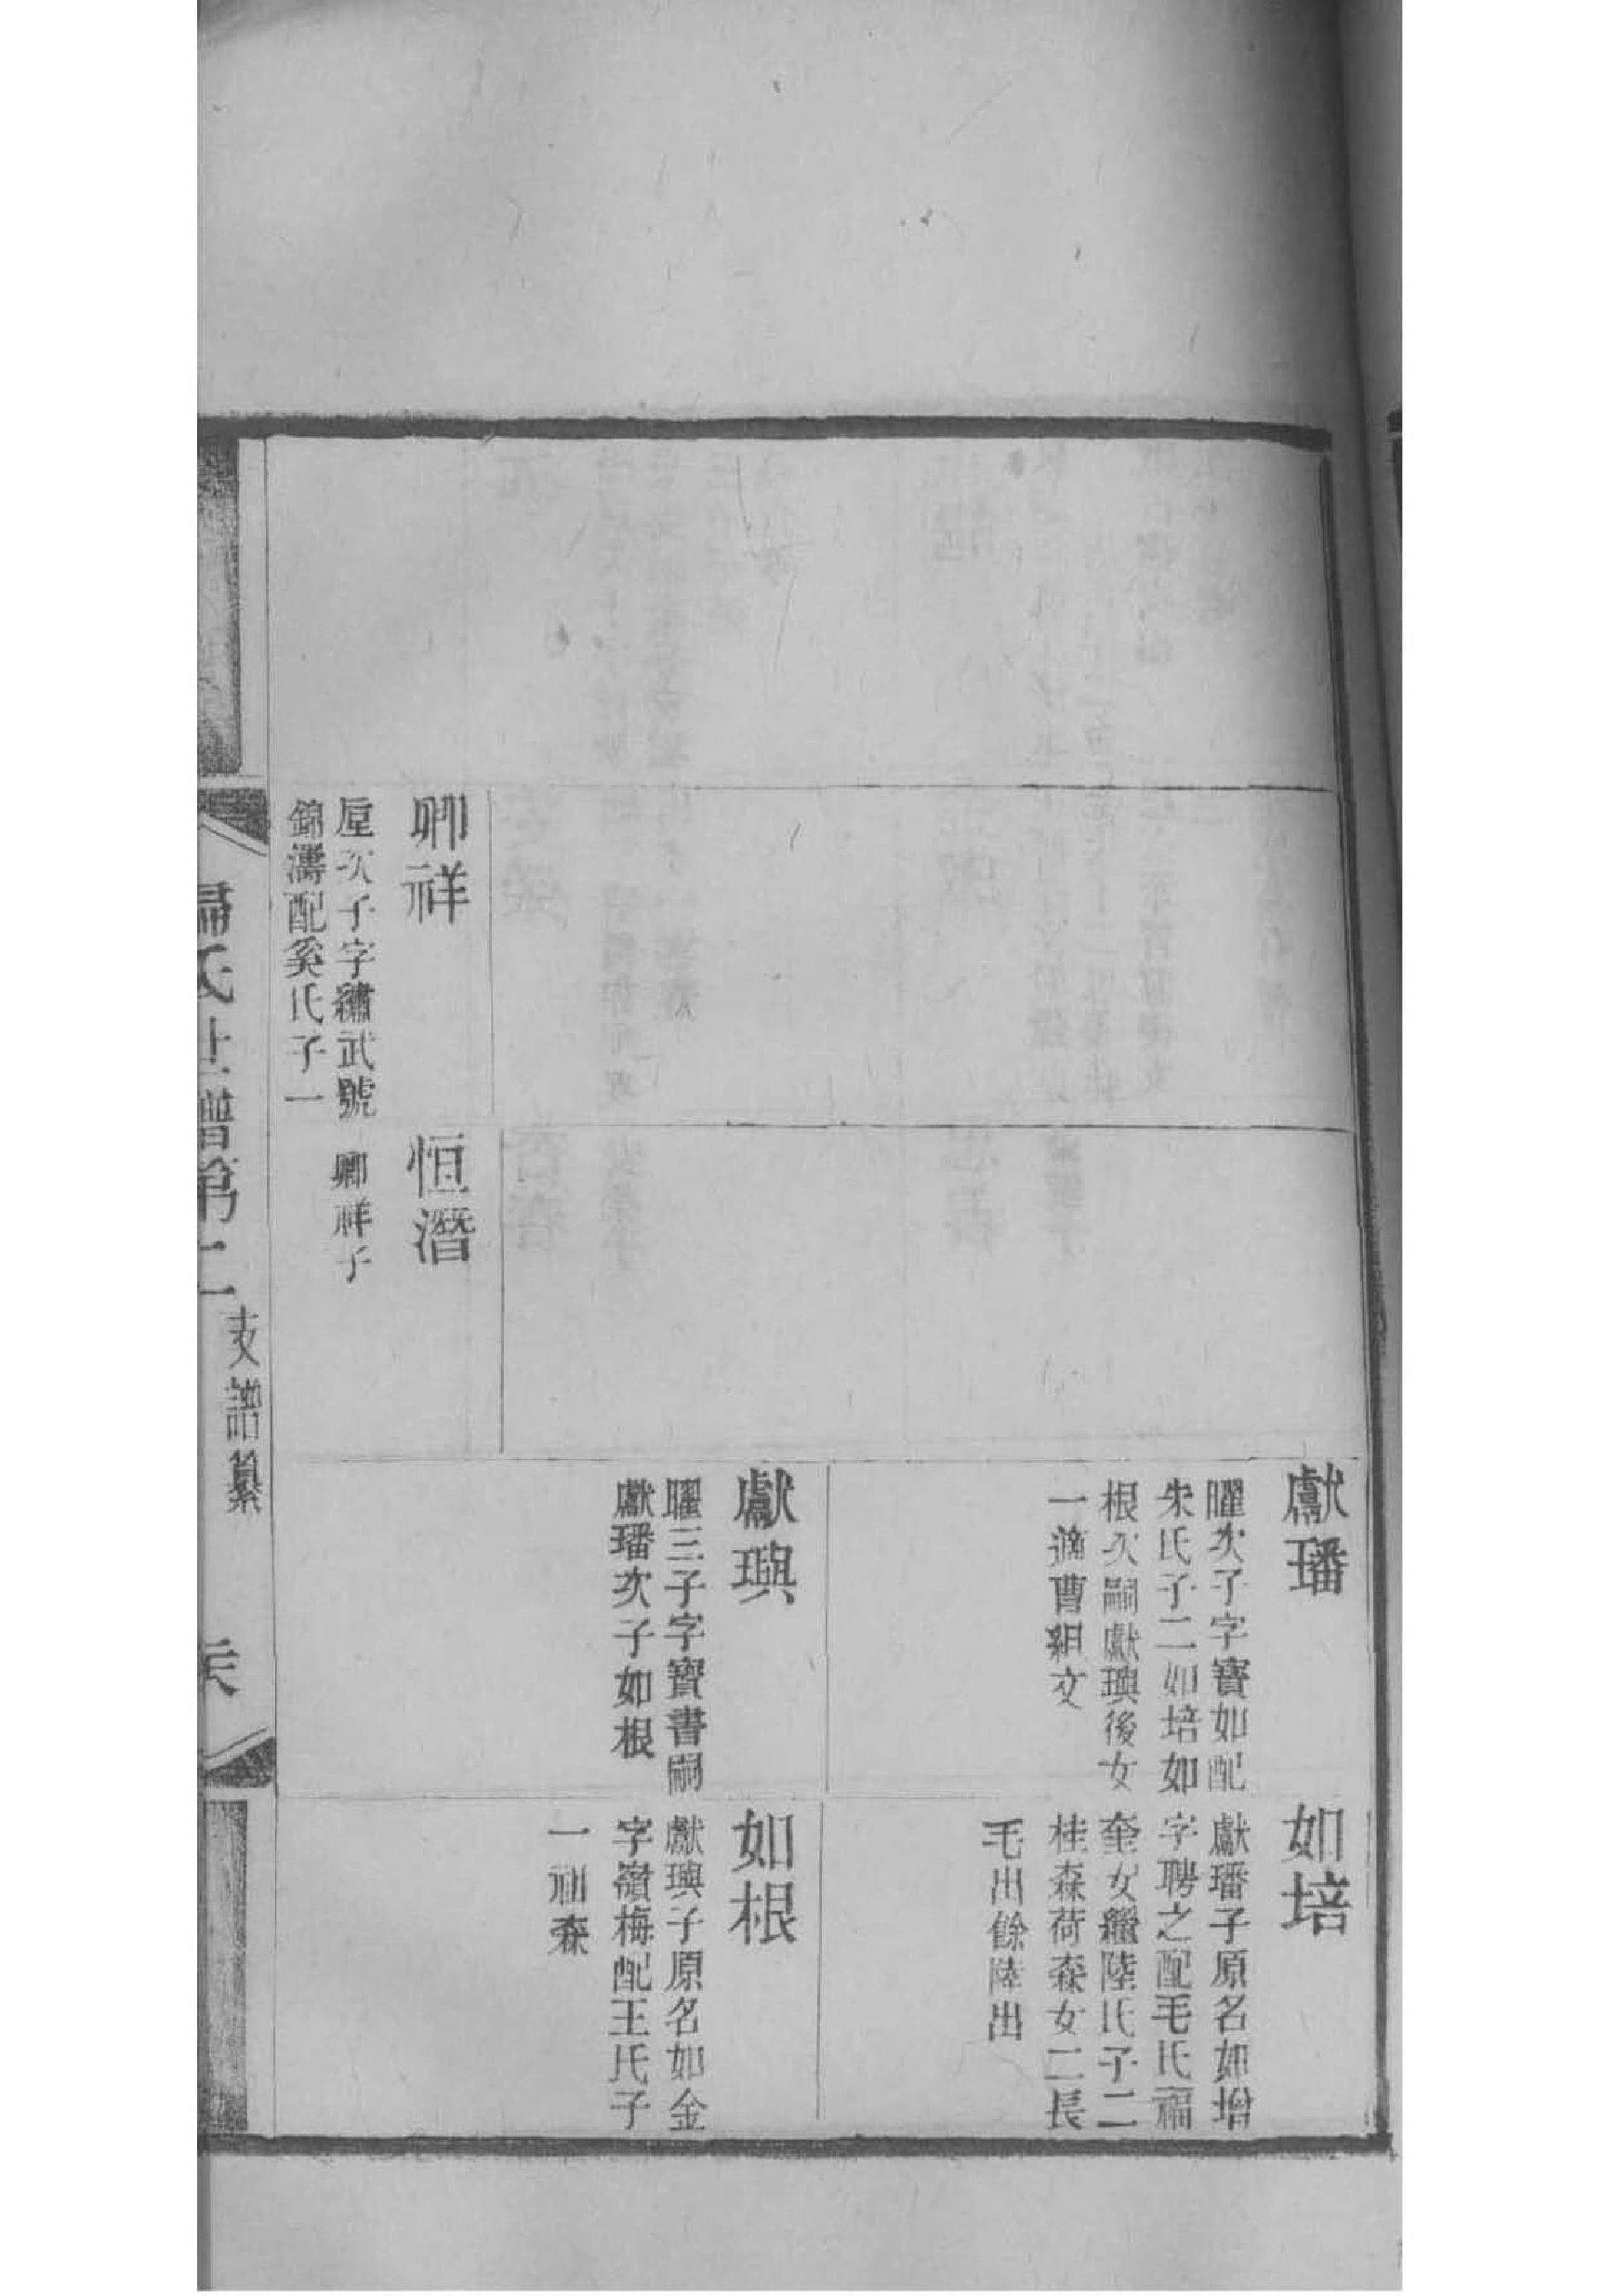 獻璠
曜次子字寶如配
朱氏子二如培如
根次嗣獻璵後女
一適曹組文
如培
獻璠子原名如增
字聘之配毛氏福
奎女繼陸氏子二
桂森荷森女二長
毛出餘陸出
獻璵
曜三子字寶書嗣
獻璠次子如根
如根
獻璵子原名如金
字嶺梅配王氏子
一福森
卿祥
次子字繡武號
錦濤配奚氏子一
恒潛
卿祥子
歸氏世譜第二
支譜纂